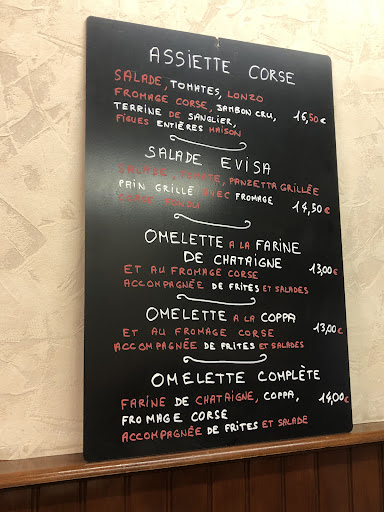 ASSIETTE CORSE
SALADE, TOMATES, LONZO
FROMAGE CORSE, JAMBON CRU,
TERRINE DE SANGLIER, 16,50€
FIGUES ENTIÈRES MAISON
SALADE EVISA
SALADE, TOMATE, PANZETTA GRILLÉE
PAIN GRILLÉ AVEC FROMAGE
CORSE FONDU 14,50€
OMELETTE A LA FARINE
DE CHATAIGNE
ET AU FROMAGE CORSE 13,00€
ACCOMPAGNÉE DE FRITES ET SALADES
OMELETTE A LA COPPA
ET AU FROMAGE CORSE 13,00€
ACCOMPAGNÉE DE FRITES ET SALADES
OMELETTE COMPLÈTE
FARINE DE CHATAIGNE, COPPA, 14,00€
FROMAGE CORSE
ACCOMPAGNÉE DE FRITES ET SALADE